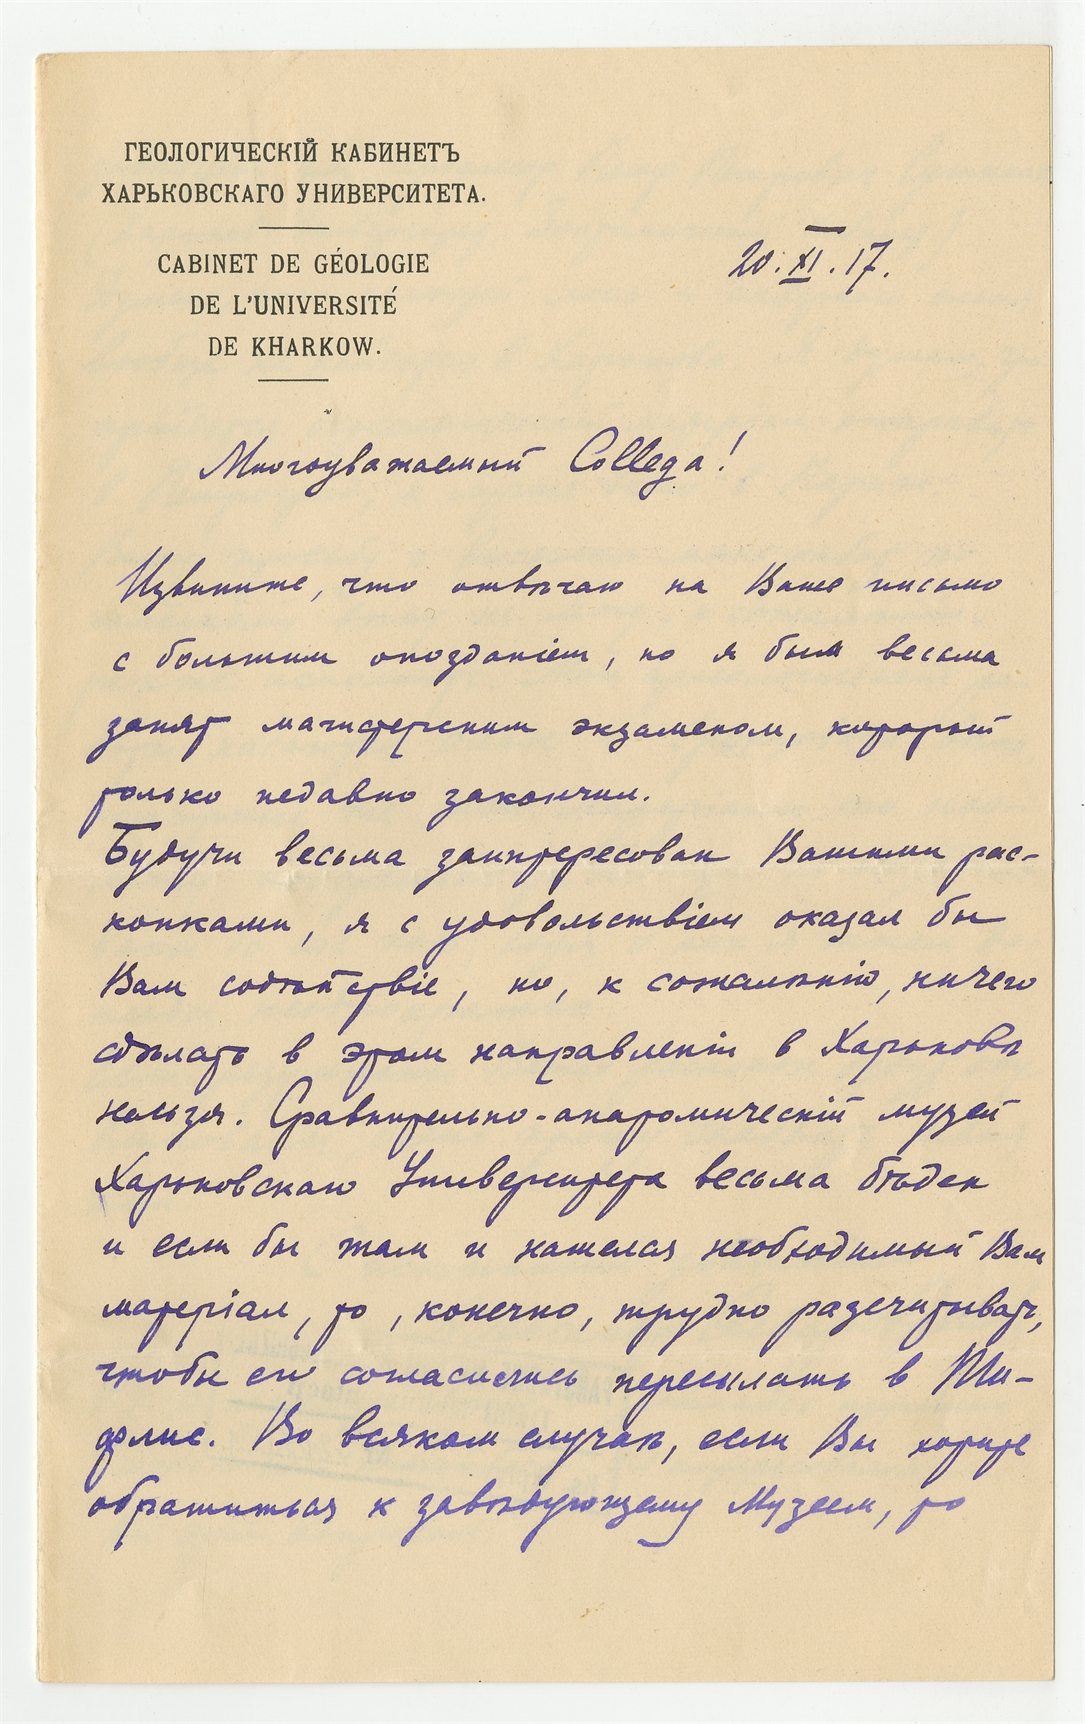 ГЕОЛОГИЧЕСКІЙ КАБИНЕТЪ
ХАРЬКОВСКАГО УНИВЕРСИТЕТА.
CABINET DE GÉOLOGIE
DE L'UNIVERSITÉ
DE KHARKOW.
20.XI.17.
Многоуважаемый Collega!
Извините, что отвѣчаю на Ваше письмо
с большим опозданіем, но я был весьма
занят магистерским экзаменом, который
только недавно закончил.
Будучи весьма заинтересован Вашими рас-
копками, я с удовольствіем оказал бы
Вам содѣйствіе, но, к сожалѣнію, ничего
сдѣлать в этом направленіи в Харьковѣ
нельзя. Сравнительно-анатомическій музей
Харьковскаго Университета весьма бѣден
и если бы там и нашелся необходимый Вам
матеріал, то, конечно, трудно разсчитывать,
чтобы его согласились пересылать в Ти-
флис. Во всяком случаѣ, если Вы хотите
обратиться к завѣдующему Музеем, то